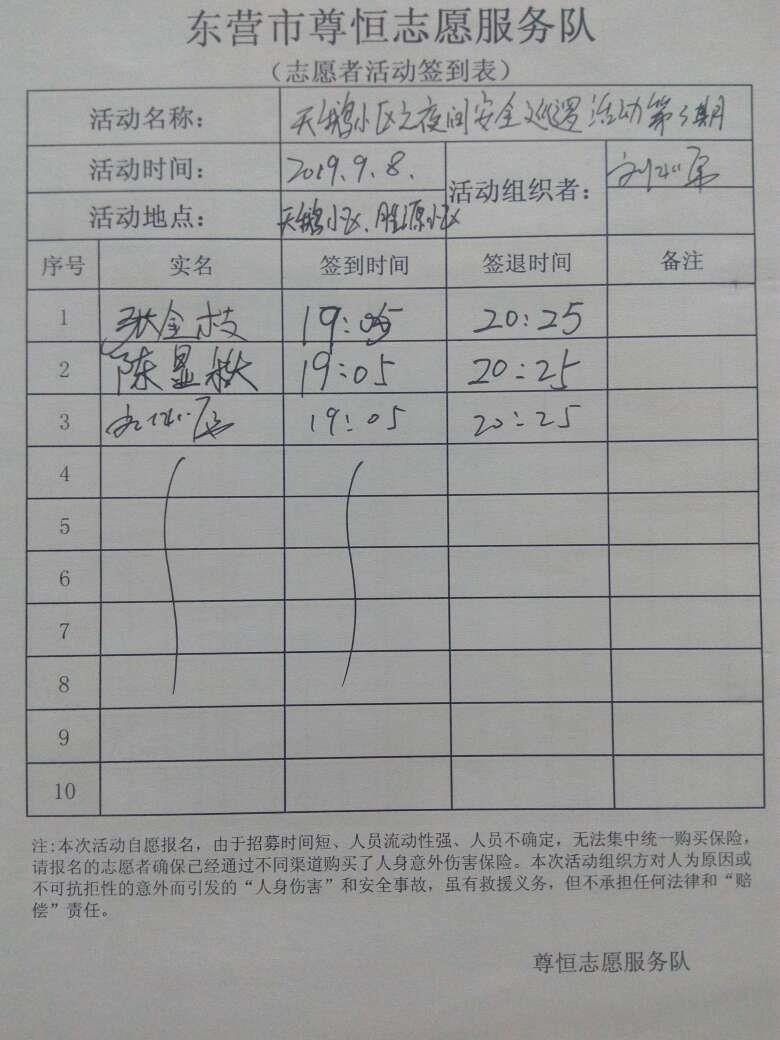 东营市尊恒志愿服务队
（志愿者活动签到表）
活动名称： 天鹅小区之夜间安全巡逻活动第 期
活动时间： 2019.9.8.
活动组织者：
活动地点： 天鹅小区、胜源小区
序号 实名 签到时间 签退时间 备注
1 张金枝 19:05 20:25
2 陈显 19:05 20:25
3 19:05 20:25
4
5
6
7
8
9
10
注:本次活动自愿报名，由于招募时间短、人员流动性强、人员不确定，无法集中统一购买保险，
请报名的志愿者确保己经通过不同渠道购买了人身意外伤害保险。本次活动组织方对人为原因或
不可抗拒性的意外而引发的“人身伤害”和安全事故，虽有救援义务，但不承担任何法律和“赔
偿”责任。
尊恒志愿服务队